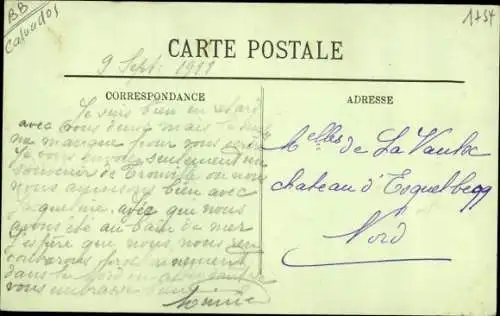 BB
Calvados
1+54
CARTE POSTALE
9 Sept. 1911
CORRESPONDANCE
Je suis bien en retard
avec vous deux mais le temps
me manque pour vous
Je vous envoie seulement un
souvenir de Trouville ou nous
nous amusons bien avec
Jacqueline avec qui nous
avons été au bain de mer
J'espère que nous nous
dans le Nord en
vous embrasse
ADRESSE
Melles de La Vaulx
chateau d'Esquelbecq
Nord